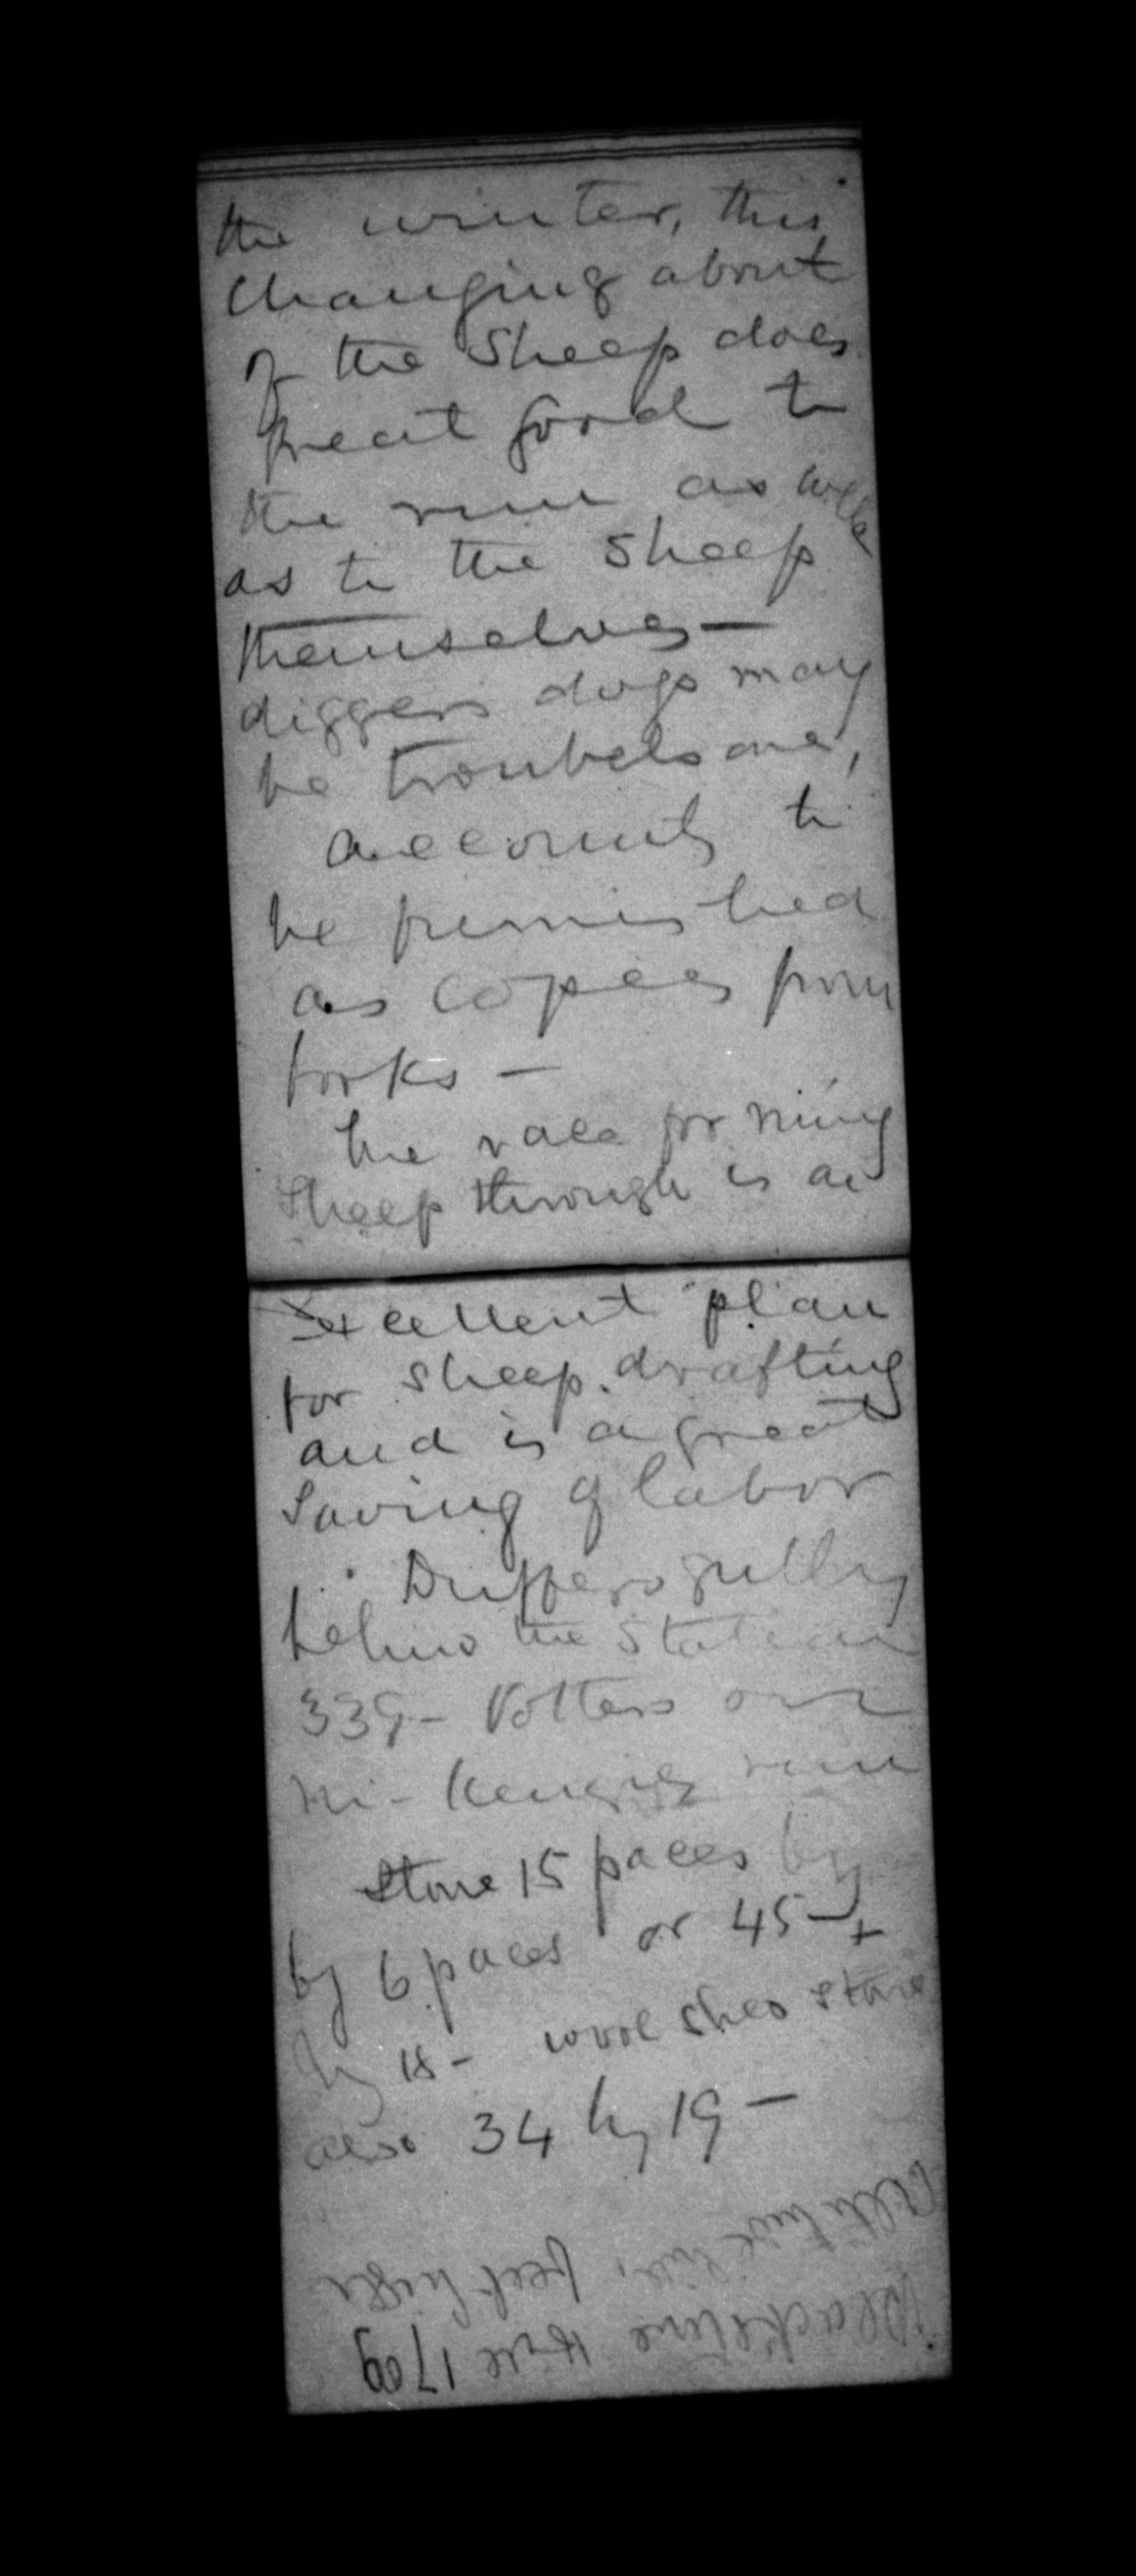 the winter, this
changing about
of the sheep does
great good to
the run as well
as to the sheep
themselves —
diggers dogs may
be troubelsome,
accounts to
be furnished
as copies from
books —
the race for ning
sheep through is an
excellent plan
for sheep drafting
and is a great
saving of labor
Duffers gully
behind the Station
339 - Votters on
run
Store 15 paces by
by 6 paces or 45 —
by 18 - wool shed store
also 34 by 19 —
feet high
Blackstone 1709